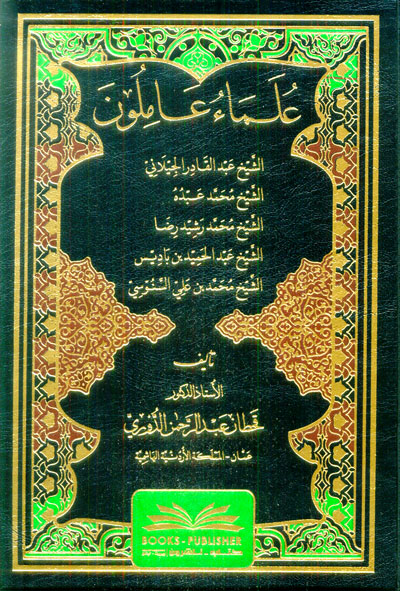 عُلَمَاءُ عَامِلُونَ
الشَّيْخ عَبْد القَادِر الجِيْلَانِي
الشَّيْخ مُحَمَّد عَبْدُه
الشَّيْخ مُحَمَّد رَشِيْد رِضَا
الشَّيْخ عَبْد الحَمِيْد بن بَادِيْس
الشَّيْخ مُحَمَّد بن عَلِي السَّنُوسِي
تأليف
الأستاذ الدكتور
قحطان عبد الرحمن الدوري
عمّان - المملكة الأردنية الهاشمية
BOOKS - PUBLISHER